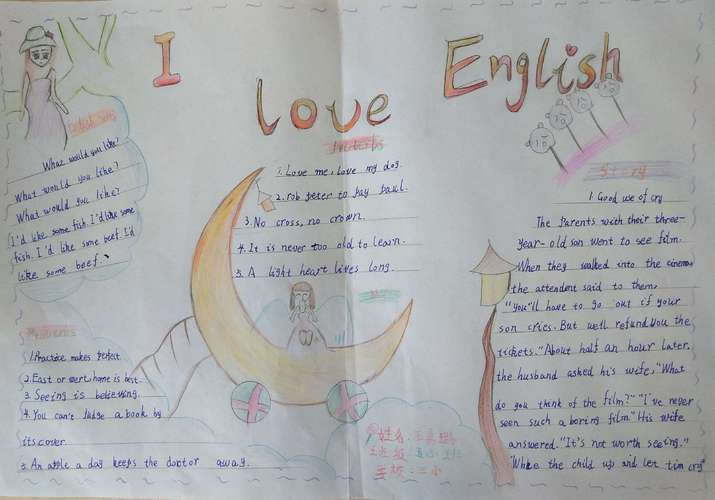 I
Love
English
What would you like?
What would you like?
What would you like?
I'd like some fish. I'd like some
fish. I'd like some beef. I'd
like some beef.
Proverbs
1. Love me, love my dog.
2. rob peter to pay paul.
3. No cross, no crown.
4. It is never too old to learn.
5. A light heart lives long.
1. Practice makes perfect.
2. East or west, home is best.
3. Seeing is believing.
4. You can't judge a book by
its cover
5. An apple a day keeps the doctor away.
姓名:
班级:
学校:三小
Story
1. Good use of cry
The Parents with their three-
year-old son went to see film.
When they walked into the cinema
the attendant said to them.
"you'll have to go out if your
son cries. But we'll refund you the
tickets." About half an hour later.
the husband asked his wife, "What
do you think of the film?" "I've never
seen such a boring film." His wife
answered. "It's not worth seeing."
"Wake the child up and let him cry"